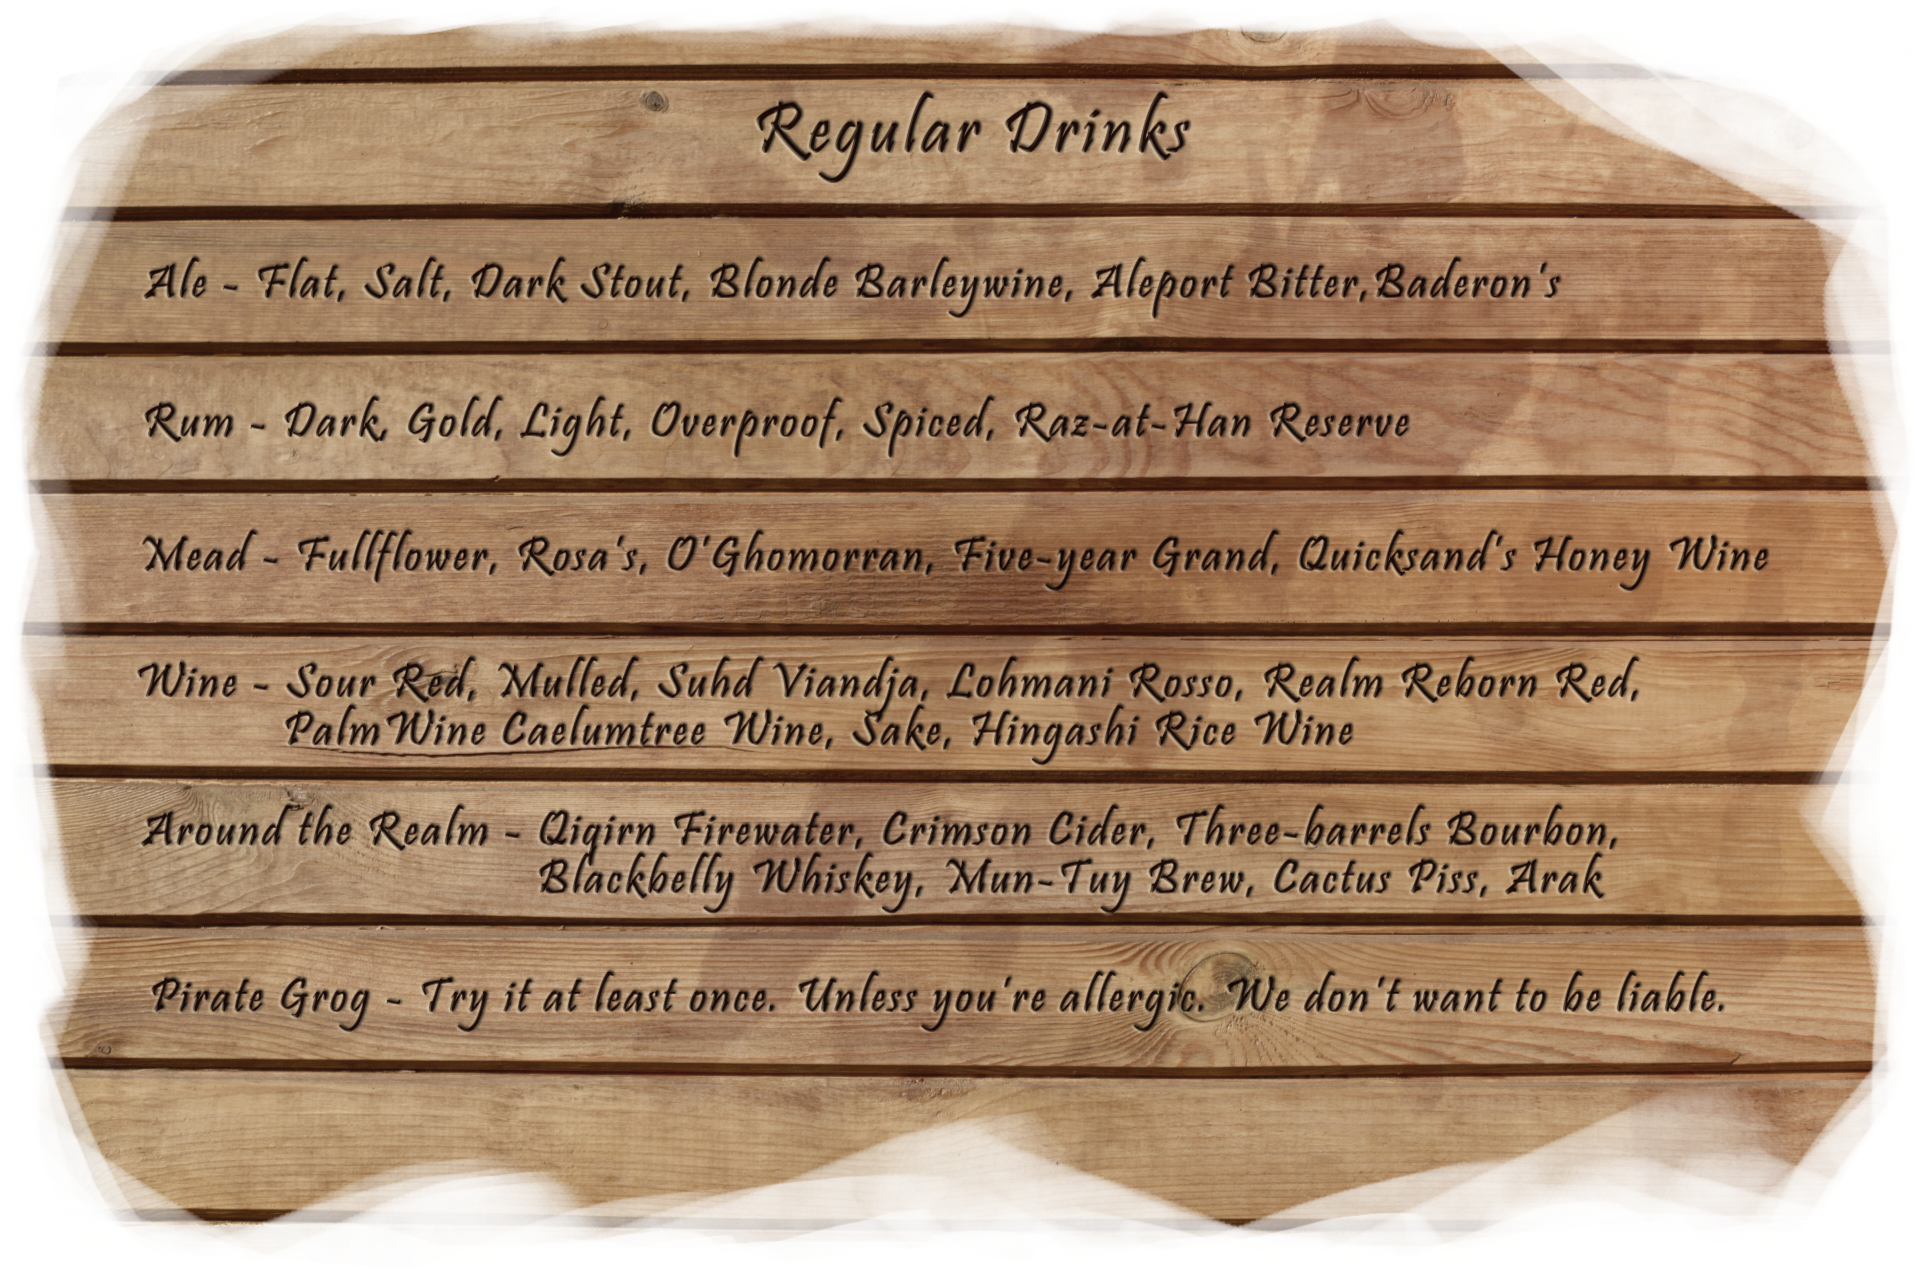 Regular Drinks
Ale - Flat, Salt, Dark Stout, Blonde Barleywine, Aleport Bitter,Baderon's
Rum - Dark, Gold, Light, Overproof, Spiced, Raz-at-Han Reserve
Mead - Fullflower, Rosa's, O'Ghomorran, Five-year Grand, Quicksand's Honey Wine
Wine - Sour Red, Mulled, Suhd Viandja, Lohmani Rosso, Realm Reborn Red,
Palm Wine Caelumtree Wine, Sake, Hingashi Rice Wine
Around the Realm - Qiqirn Firewater, Crimson Cider, Three-barrels Bourbon,
Blackbelly Whiskey, Mun-Tuy Brew, Cactus Piss, Arak
Pirate Grog - Try it at least once. Unless you're allergic. We don't want to be liable.